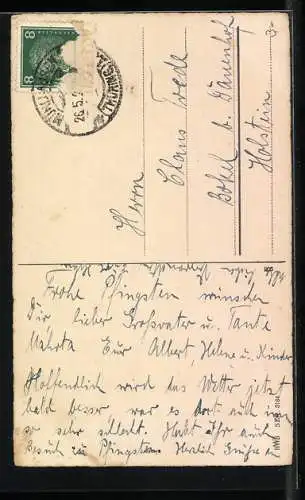 8
8
26.5.2
Herrn
Claus Trede
Bokel b. Dauenhof
Holstein
Frohe Pfingsten wünschen
Dir lieber Grossvater u. Tante
Marta Eur Albert, Helene u. Kinder
Hoffendlich wird das Wetter jetzt
bald besser, war es dort auch
so sehr schlecht. Habt Ihr auch
Besuch zu Pfingsten. Herzlich Grüße